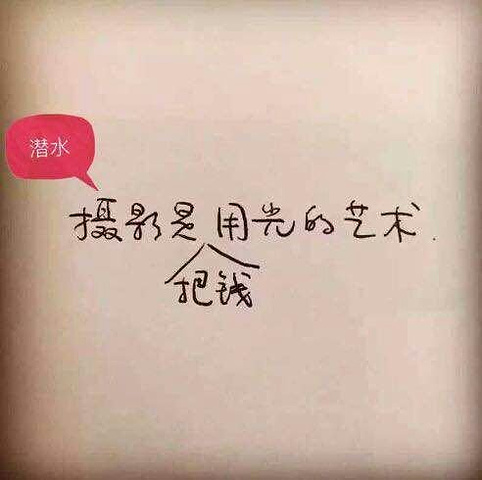 潜水
摄影是用光的艺术.
把钱